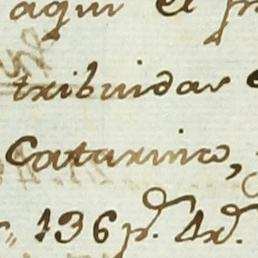 aqui el
tribuidas
Catarina,
136 p.s 4 r.s